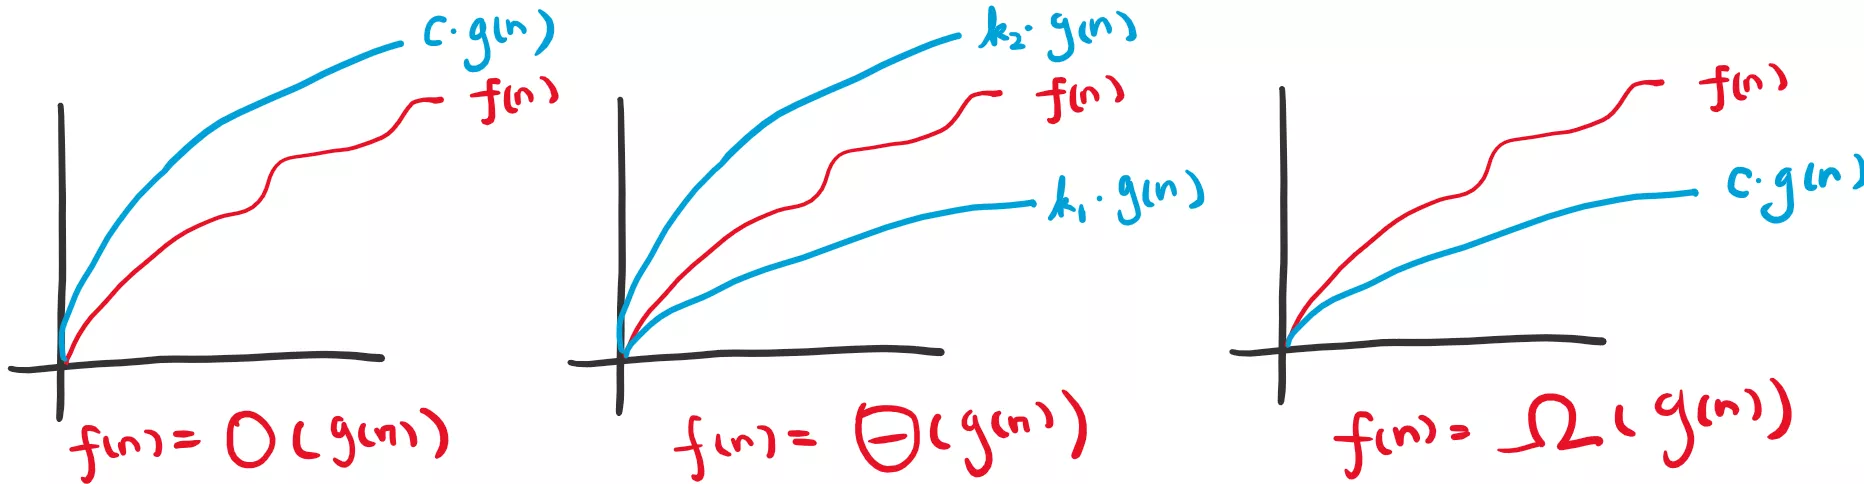 c·g(n)
f(n)
f(n) = O(g(n))
k₂·g(n)
f(n)
k₁·g(n)
f(n) = Θ(g(n))
f(n)
c·g(n)
f(n) = Ω(g(n))